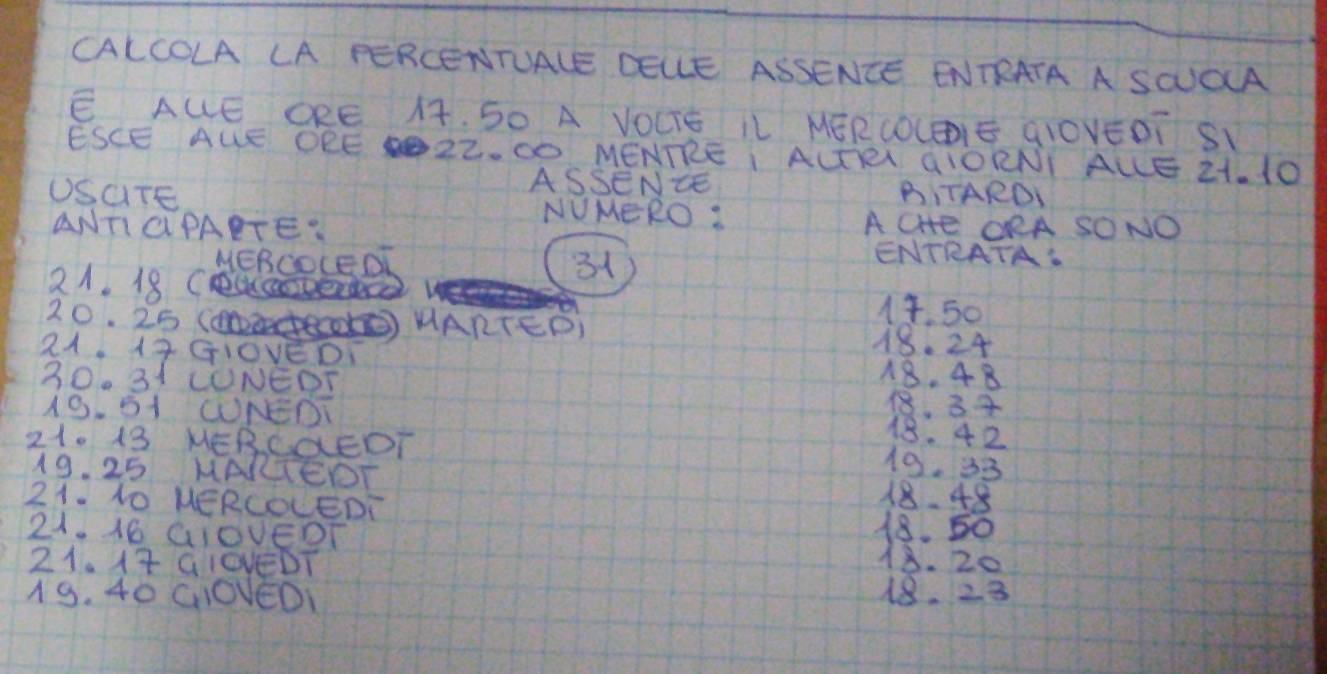 CALCOLA LA PERCENTUALE DELLE ASSENZE ENTRATA A SCUOLA
È ALLE ORE 17.50 A VOLTE IL MERCOLEDI E GIOVEDÌ SI
ESCE ALLE ORE 22.00 MENTRE I ALTRI GIORNI ALLE 21.10
USCITE
ANTICIPARTE:
MERCOLEDÌ
21.18
20.25 MARTEDÌ
21.17 GIOVEDÌ
20.31 LUNEDÌ
19.51 LUNEDÌ
21.13 MERCOLEDÌ
19.25 MARTEDÌ
21.10 MERCOLEDÌ
21.16 GIOVEDÌ
21.17 GIOVEDÌ
19.40 GIOVEDÌ
ASSENZE
NUMERO:
31
RITARDI
A CHE ORA SONO
ENTRATA:
17.50
18.24
18.48
18.37
18.42
19.33
18.48
18.50
18.20
18.23